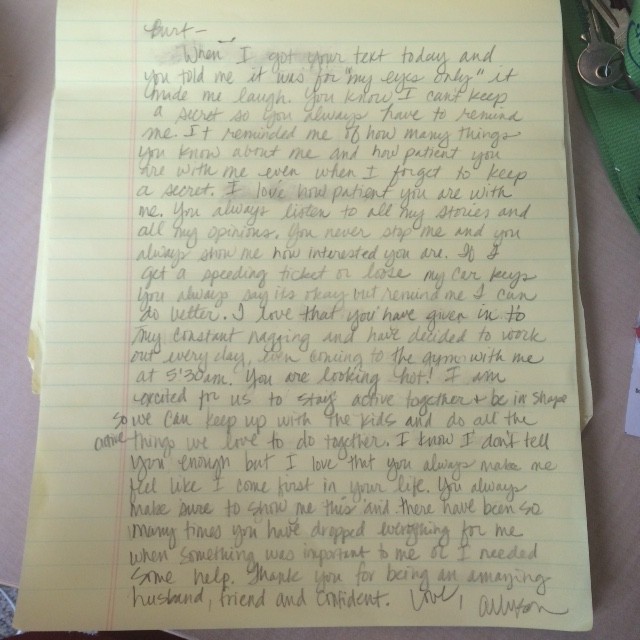 Burt-
When I got your text today and
you told me it was for "my eyes only" it
made me laugh. You know I cant keep
a secret so you always have to remind
me. It reminded me of how many things
you know about me and how patient you
are with me even when I forget to keep
a secret. I love how patient you are with
me. You always listen to all my stories and
all my opinions. You never stop me and you
always show me how interested you are. If I
get a speeding ticket or loose my car keys
you always say its okay but remind me I can
do better. I love that you have given in to
my constant nagging and have decided to work
out every day, even coming to the gym with me
at 5:30am. You are looking hot! I am
excited for us to stay active together + be in shape
so we can keep up with the kids and do all the
active things we love to do together. I know I don't tell
you enough but I love that you always make me
feel like I come first in your life. You always
make sure to show me this and there have been so
many times you have dropped everything for me
when something was important to me or I needed
some help. Thank you for being an amazing
husband, friend and confident. Love, Allyson